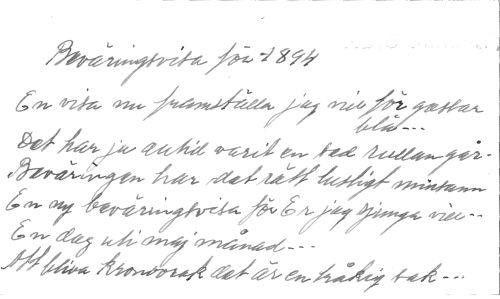 Beväringsvisa för 1894
En visa nu framställa jag vill för gossar
blå---
Det har ju alltid varit en sed rullan går-
Beväringen har det rätt lustigt minsann
En ny beväringsvisa för Er jag sjunga vill--
En dag uti maj månad---
Att bliva kronvrak det är en tråkig sak---